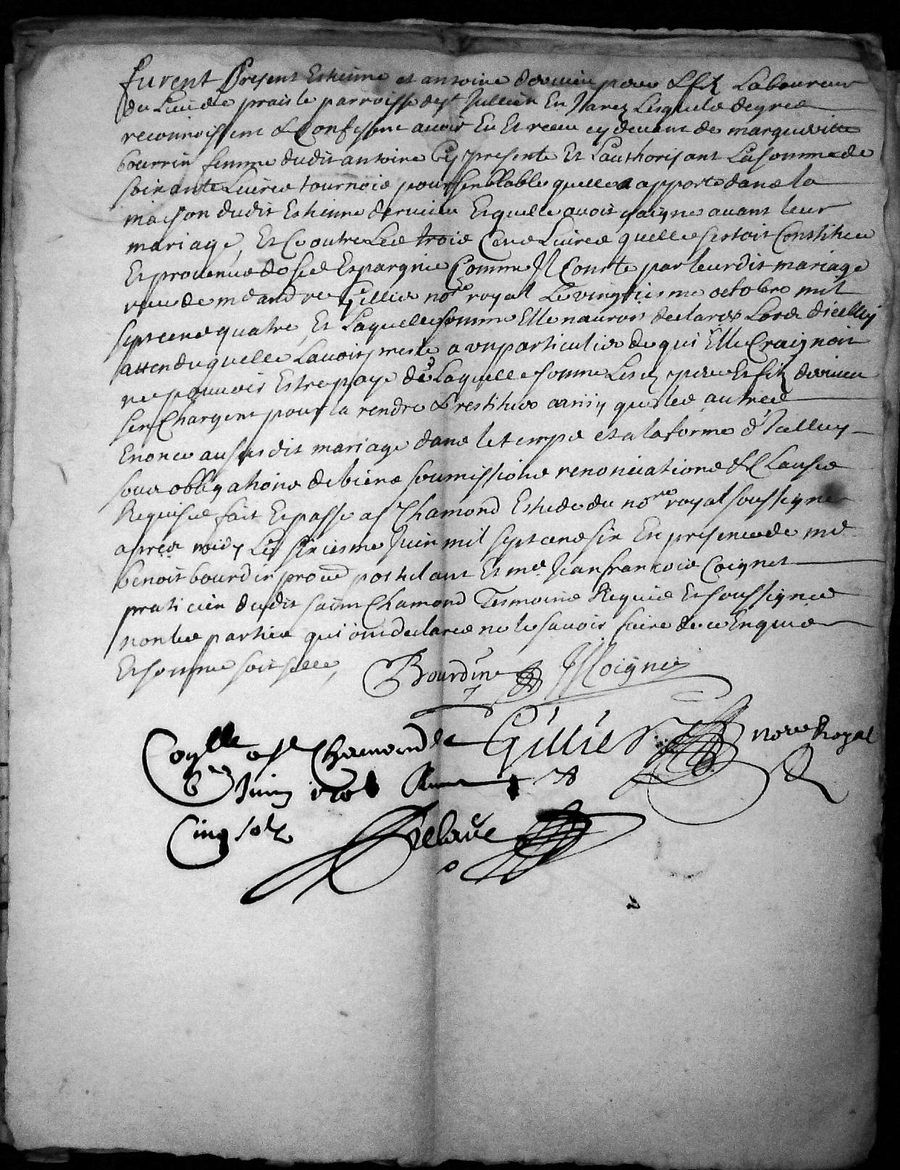 furent Present Estienne et antoine dervieu pere & filz Laboureurs
du Lieu de praisle parroisse de st Jullien En Jarez Lesquels de gré
reconnoissent & Confessent avoir Eu Et receu cy devant de margueritte
bourrin femme dudit antoine Cy presente Et L'authorisant La somme de
soixante Livres tournois pour semblable quelle a apporté dans la
maison dudit Estienne dervieu Et quelle avoit gaigné avant leur
mariage, Et Ce outre Les trois Cens Livres quelle sestoit Constituée
Et provenue de ses Espargnes Comme Il Conste par leurdit mariage
receu de me andré Gillier nore royal Le vingtiesme octobre mil
sept cens quatre, Et Laquelle somme Elle nauroit declaré Lors d'icelluy
attendu quelle Lavoit presté a un particulier de qui Elle Craignoit
ne pouvoir Estre payé de Laquelle somme Lesd. pere Et filz dervieu
sen Chargent pour la rendre & restituer ainsy que les autres
Enoncé aususdit mariage dans le temps et a la forme d'Icelluy
sous obligations de biens soumissions renonciations & Clauses
Requises fait Et passé a st Chamond Estude du nore royal soussigné
apres midy Le sixiesme Juin mil sept cens six En presence de me
benoit bourdin procu postulant Et me Jean francois Coignet
praticien dudit saint Chamond Tesmoins Requis Et soussignés
non les parties qui ont declaré ne le savoir faire de ce Enquis
Et sommé
Bourdin JfCoignet
Gillier nore Royal
Conllé a st Chamond le
Juin
Cinq solz